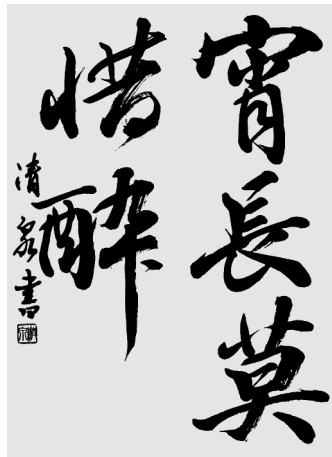 宵長莫
惜酔
清泉書